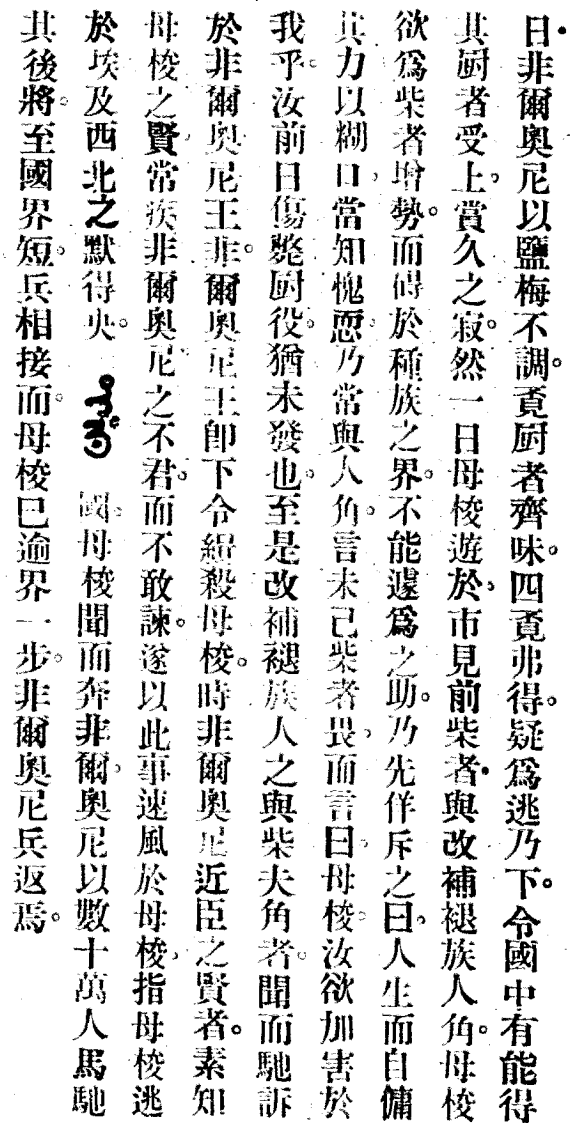 曰非爾奧尼以鹽梅不調覔厨者齊味四覔弗得疑爲逃乃下令國中有能得
其厨者受上賞久之寂然一日母梭遊於市見前柴者與改補褪族人角母梭
欲爲柴者增勢而碍於種族之界不能遽爲之助乃先佯斥之曰人生而自傭
其力以糊口當知愧恧乃常與人角言未已柴者畏而言曰母梭汝欲加害於
我乎汝前日傷斃厨役猶未發也至是改補褪族人之與柴夫角者聞而馳訴
於非爾奧尼王非爾奧尼王卽下令緝殺母梭時非爾奧尼近臣之賢者素知
母梭之賢常疾非爾奧尼之不君而不敢諫遂以此事速風於母梭指母梭逃
於埃及西北之默得央 國母梭聞而奔非爾奧尼以數十萬人馬馳
其後將至國界短兵相接而母梭已逾界一步非爾奧尼兵返焉